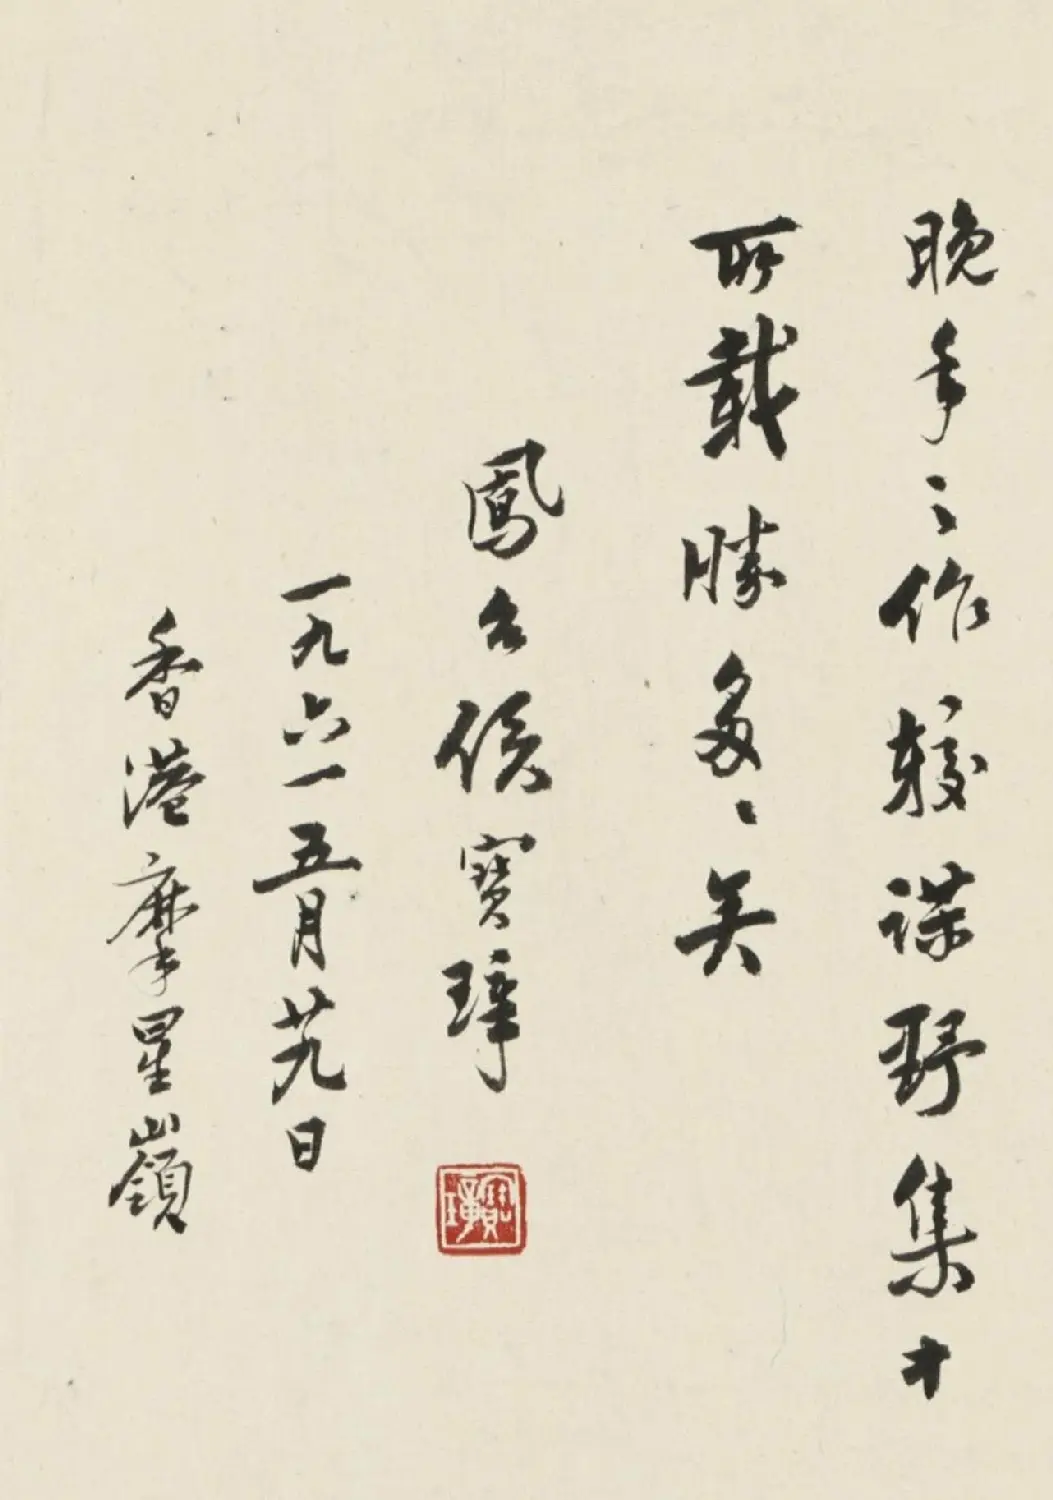 晚年之作較謀野集中
所載勝多〻矣
鳳台侯寶璋
寶璋
一九六一五月廿九日
香港摩星嶺